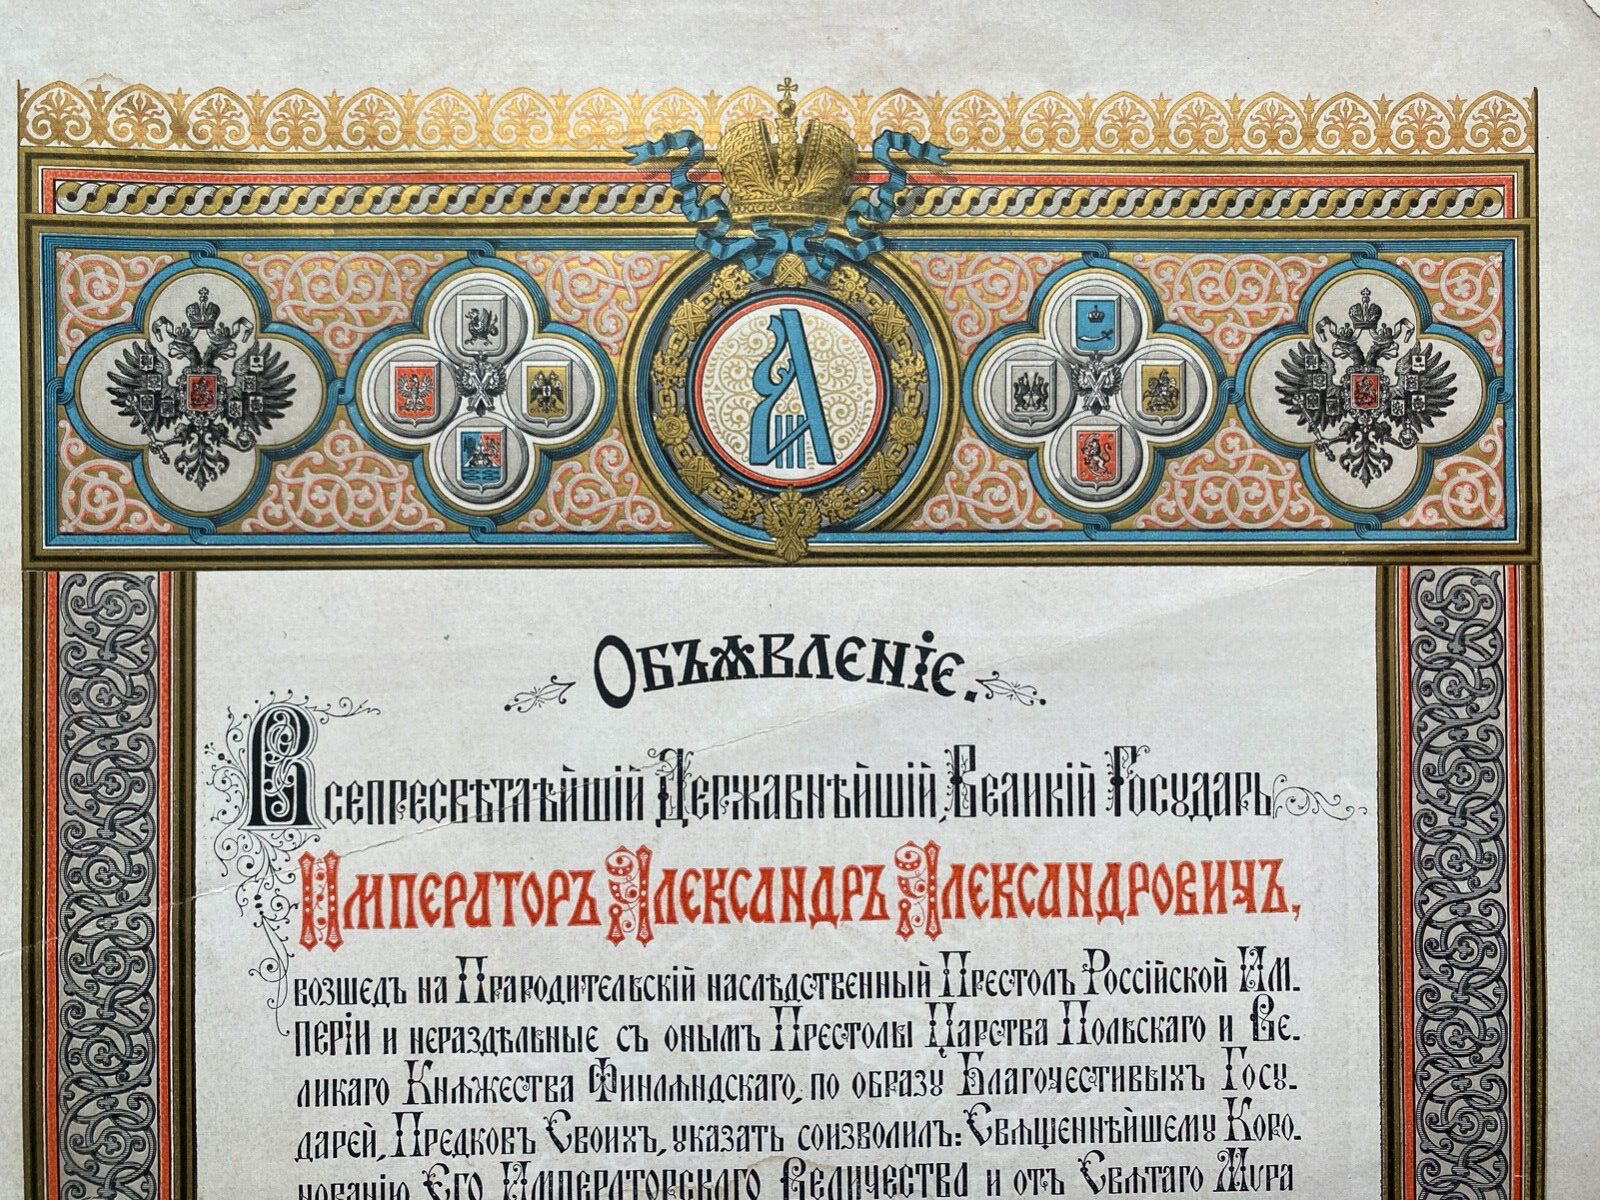 А III
Объѧвленіе.
Всепресвѣтлѣйшій Державнѣйшій, Великій Государь
Императоръ Александръ Александровичъ,
возшедъ на Прародительскій наслѣдственный Престолъ Россійской Им-
періи и нераздѣльные съ онымъ Престолы Царства Польскаго и Ве-
ликаго Кнѧжества Финлѧндскаго, по образу Благочестивыхъ Госу-
дарей, Предковъ Своихъ, указать соизволилъ: Свѧщеннѣйшему Коро-
нованію Его Императорскаго Величества и отъ Свѧтаго Мѵра